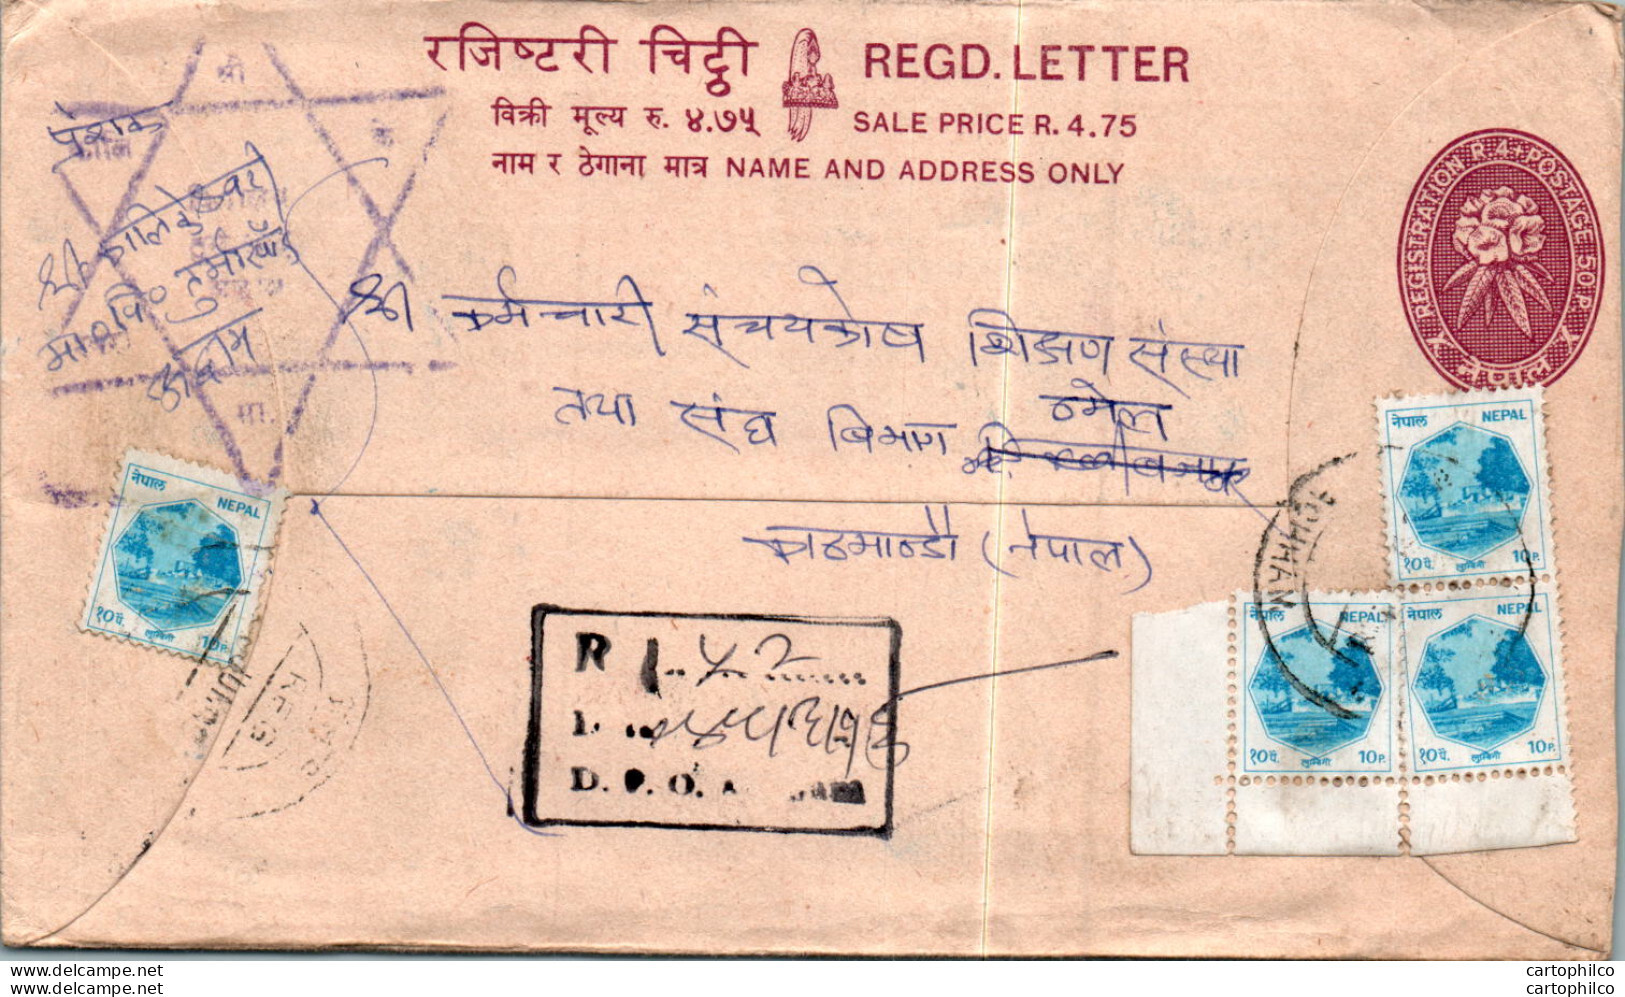 रजिष्टरी चिट्ठी REGD. LETTER
विक्री मूल्य रु. ४.७५ SALE PRICE R. 4.75
नाम र ठेगाना मात्र NAME AND ADDRESS ONLY
REGISTRATION R. 4 + POSTAGE 50 P.
नेपाल
श्री
के
मा.
प्रेषक
श्री कालिकेश्वरी
मा० वि०
श्री कर्मचारी संचयकोष शिक्षण संस्था
तथा संघ विभाग ठमेल
काठमाण्डौ (नेपाल)
नेपाल NEPAL
१० पै. लुम्बिनी 10 P.
नेपाल NEPAL
१० पै. लुम्बिनी 10 P.
नेपाल NEPAL
१० पै. लुम्बिनी 10 P.
नेपाल NEPAL
१० पै. लुम्बिनी 10 P.
REG
R
D. P. O.
www.delcampe.net
www.delcampe.net
cartophilco
cartophilco